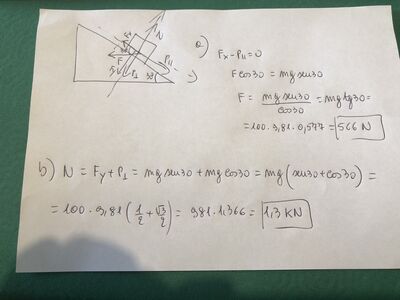 N
Fx
30°
F
Fy
P⊥
P∥
30°
a) Fx - P∥ = 0
F cos30 = mg sin30
F = mg sin30 / cos30 = mg tg30 =
= 100 · 9,81 · 0,577 = 566 N
b) N = Fy + P⊥ = mg sin30 + mg cos30 = mg (sin30 + cos30) =
= 100 · 9,81 (1/2 + √3/2) = 981 · 1,366 = 1,3 KN